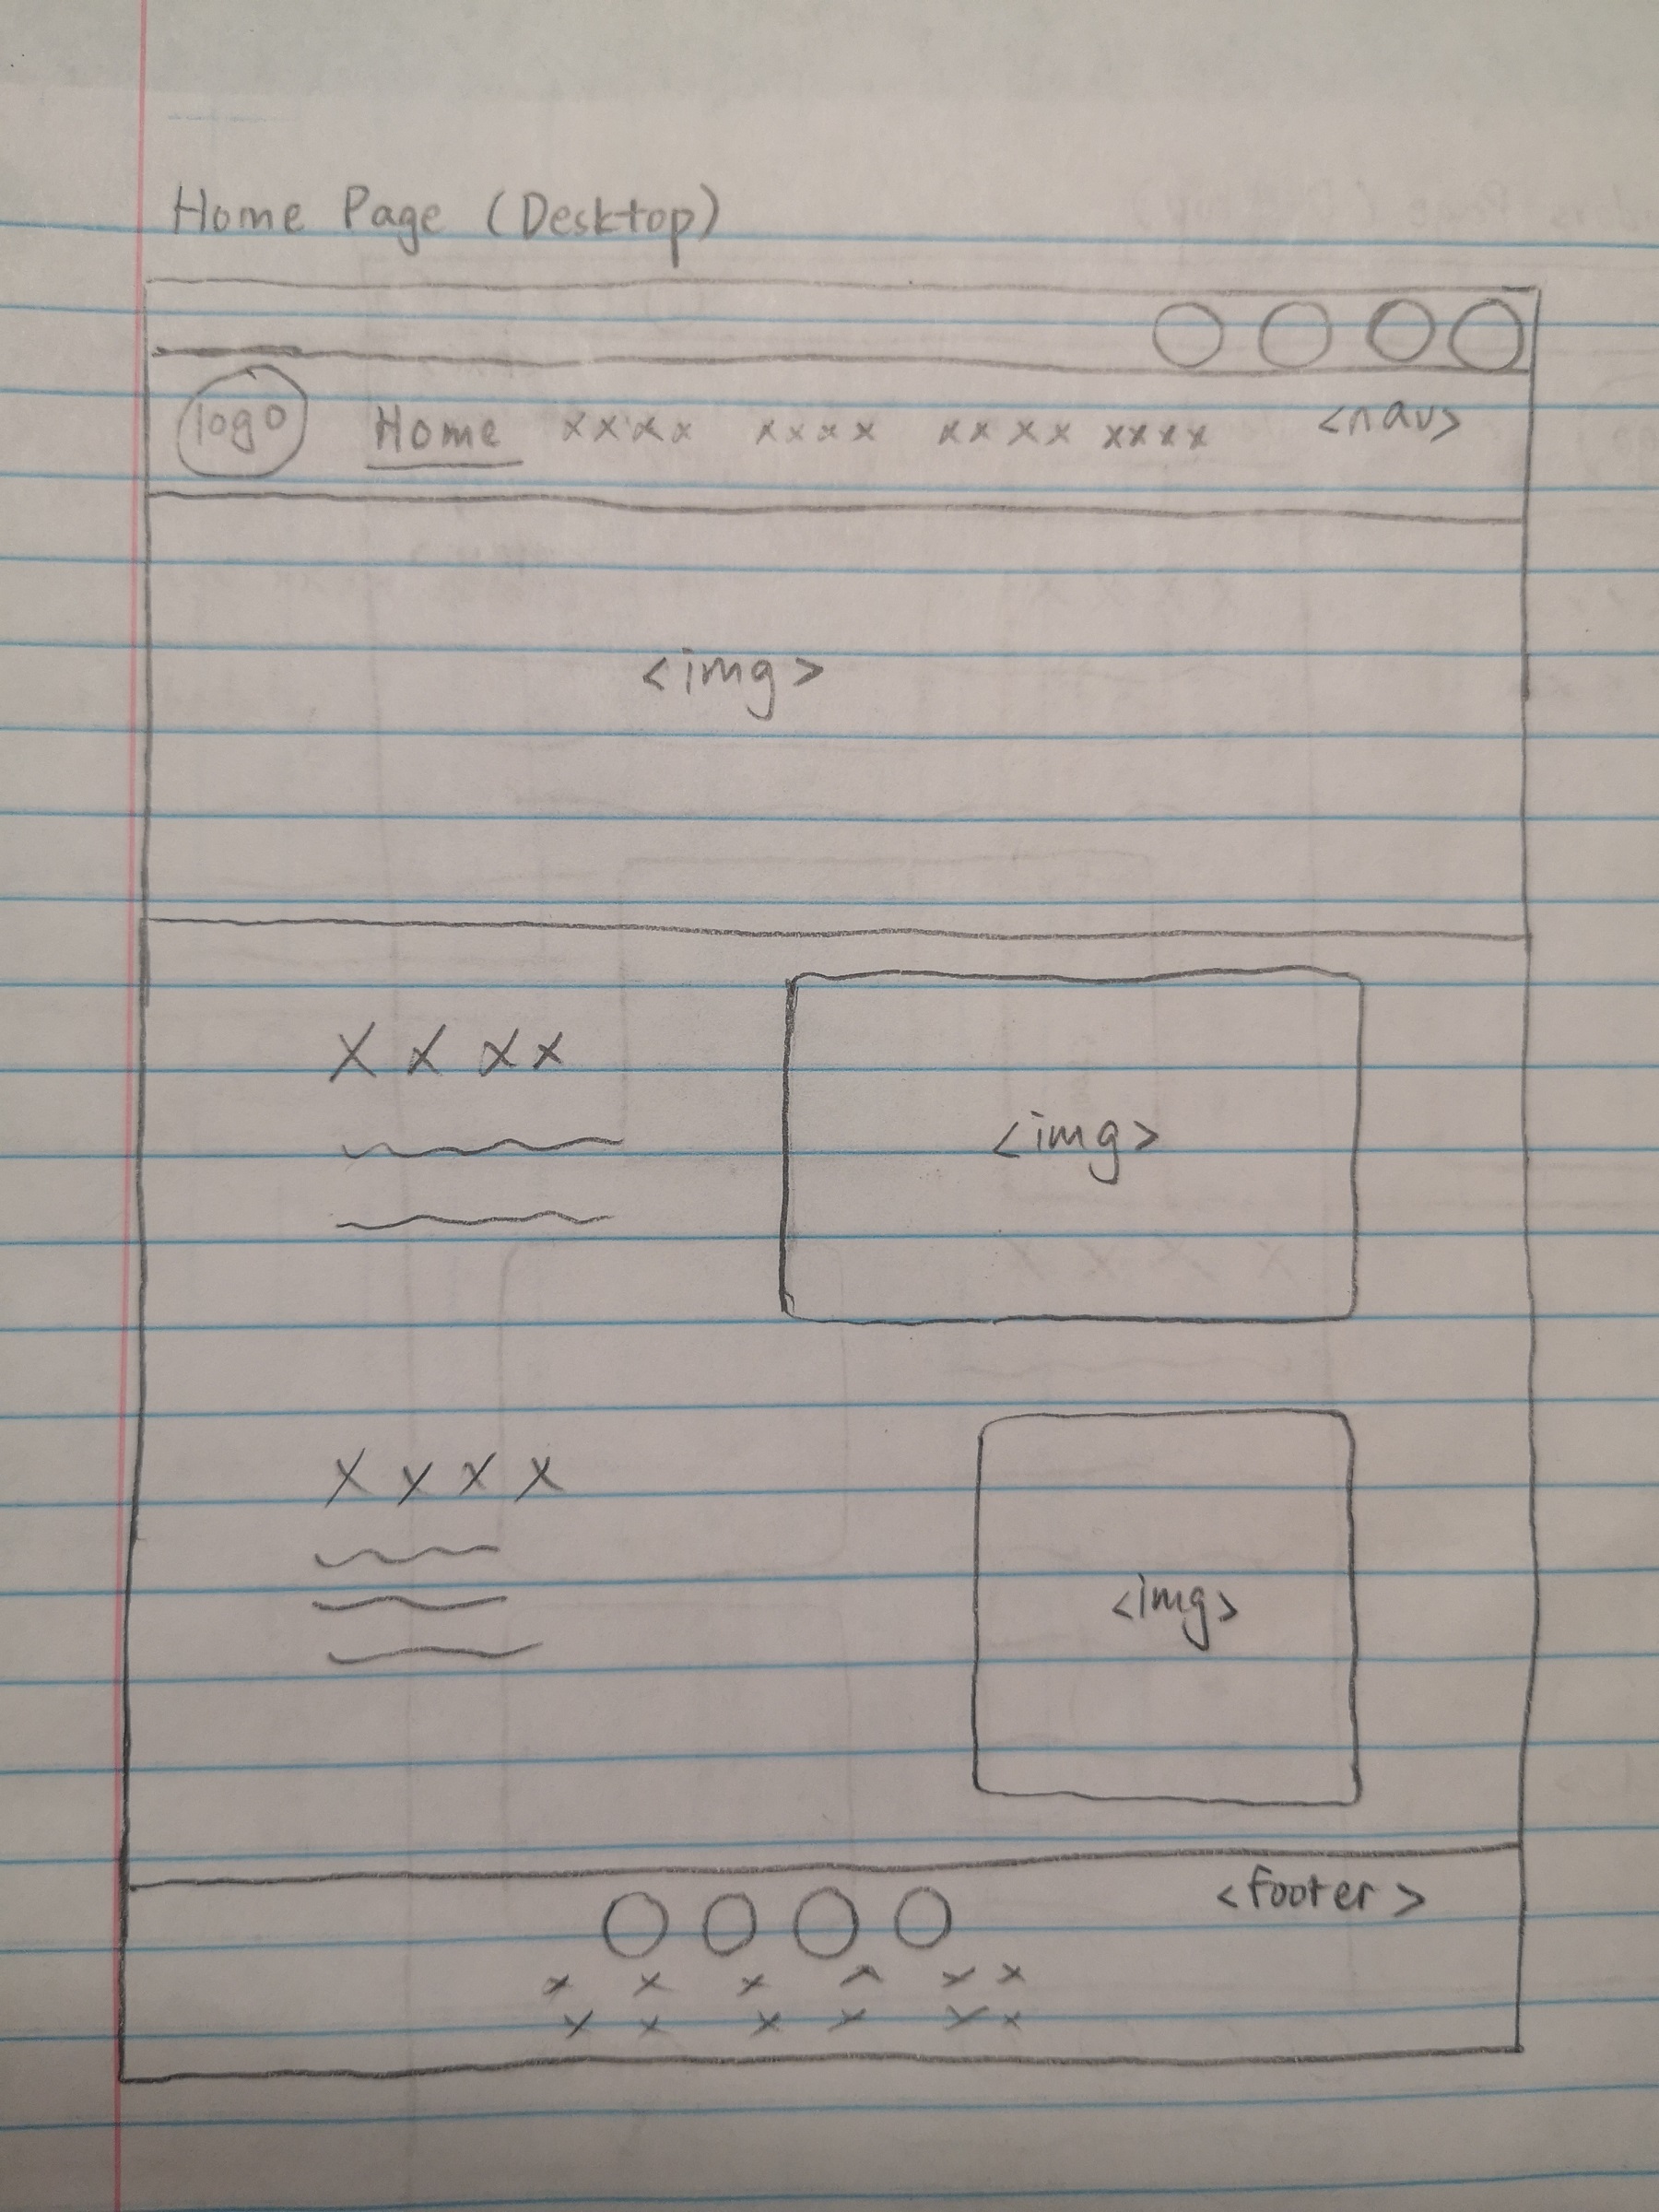 Home Page (Desktop)
logo Home xxxx xxxx xxxx xxxx <nav>
<img>
X x x x
<img>
X x x x
<img>
<footer>
x x x x x x
x x x x x x